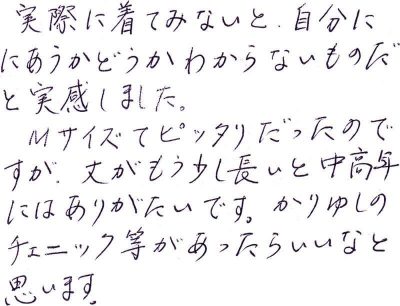 実際に着てみないと、自分に
にあうかどうかわからないものだ
と実感しました。
Mサイズでピッタリだったので
すが、丈がもう少し長いと中高年
にはありがたいです。かりゆしの
チェニック等があったらいいなと
思います。